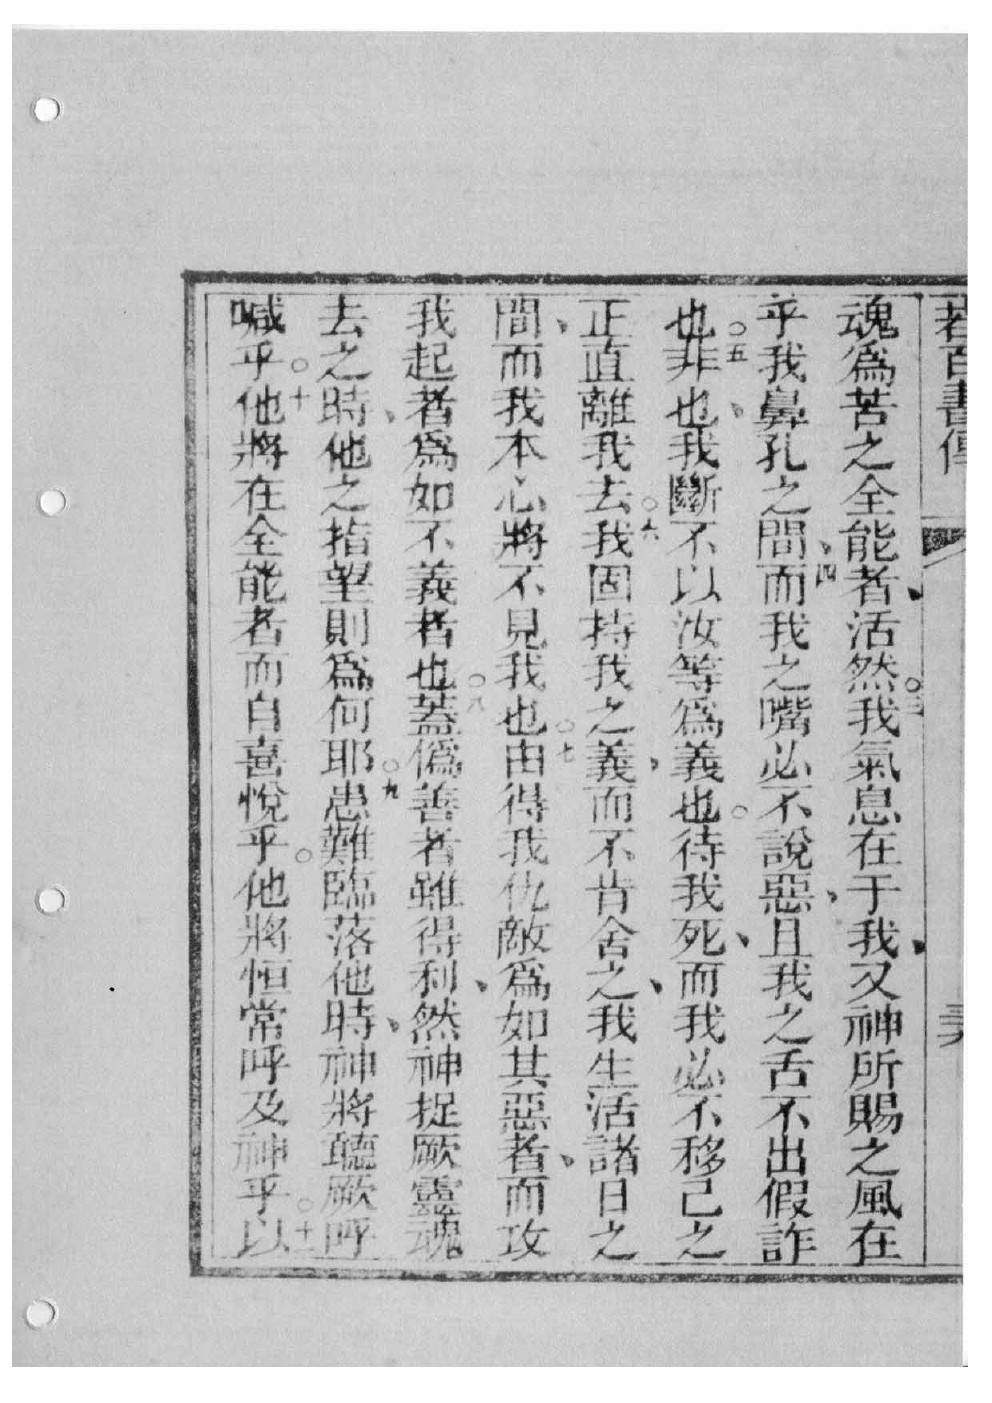 若百書傳
魂爲苦之全能者活、然○三我氣息在于我、又神所賜之風在
乎我鼻孔之間、四而我之嘴必不說惡、且我之舌不出假詐
也○五非也、我斷不以汝等爲義也○待我死、而我必不移己之
正直離我去○六我固持我之義、而不肯舍之、我生活諸日之
間、而我本心將不見我也○七由得我仇敵爲如其惡者、而攻
我起者爲如不義者也○八蓋僞善者雖得利、然神捉厥靈魂
去之時、他之指望則爲何耶○九患難臨落他時、神將聽厥呼
喊乎○十他將在全能者而自喜悅乎○他將恒常呼及神乎○十一以